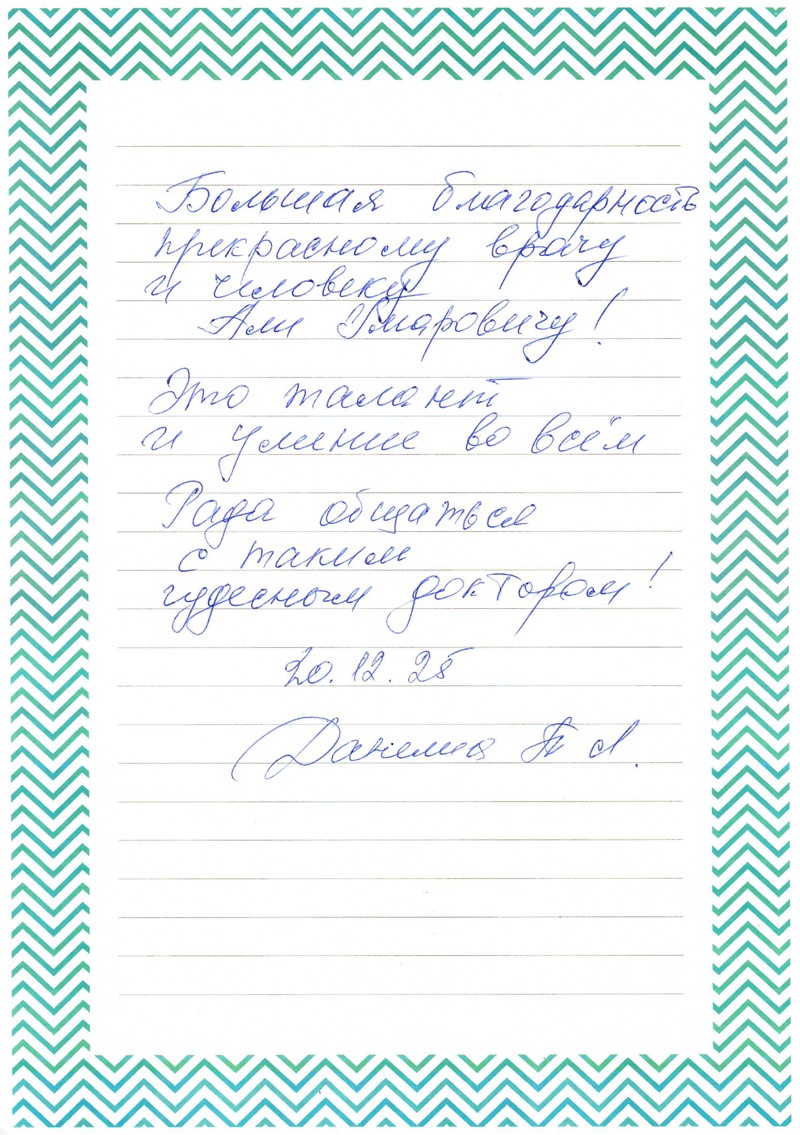 Большая благодарность
прекрасному врачу
и человеку
Али Умаровичу!
Это талант
и умение во всём
Рада общаться
с таким
чудесным доктором!
20.12.25
Т Л.